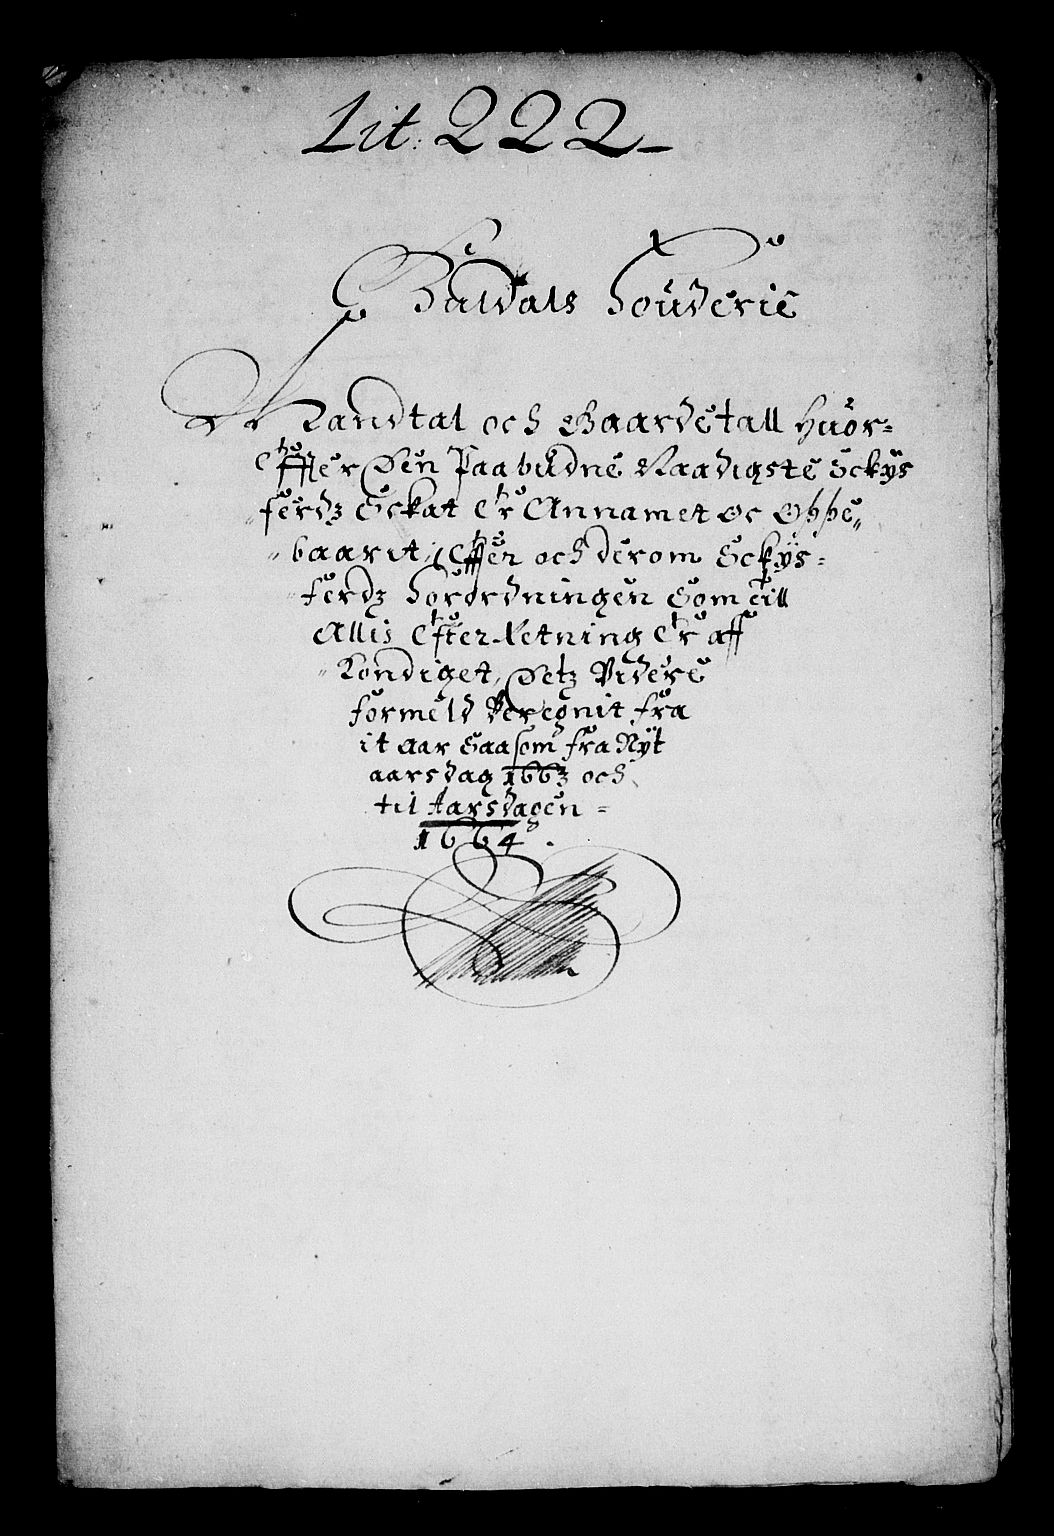 Lit: 222
Guldals Fouderie
Mandtal och Gaardetall Huor=
Effter Den Paabudne Naadigste Schys
ferdz Schat Er Annamet oc Oppe„
„baarit, Effter och derom Schys=
ferdz Forordningen Som till
Allis Efter Retning Er aff
Kondiget, Detz Videre
formeld Beregnit fra
it aar Saasom fra Nyt
aarsdag 1663 och
til Aarsdagen=
1664.